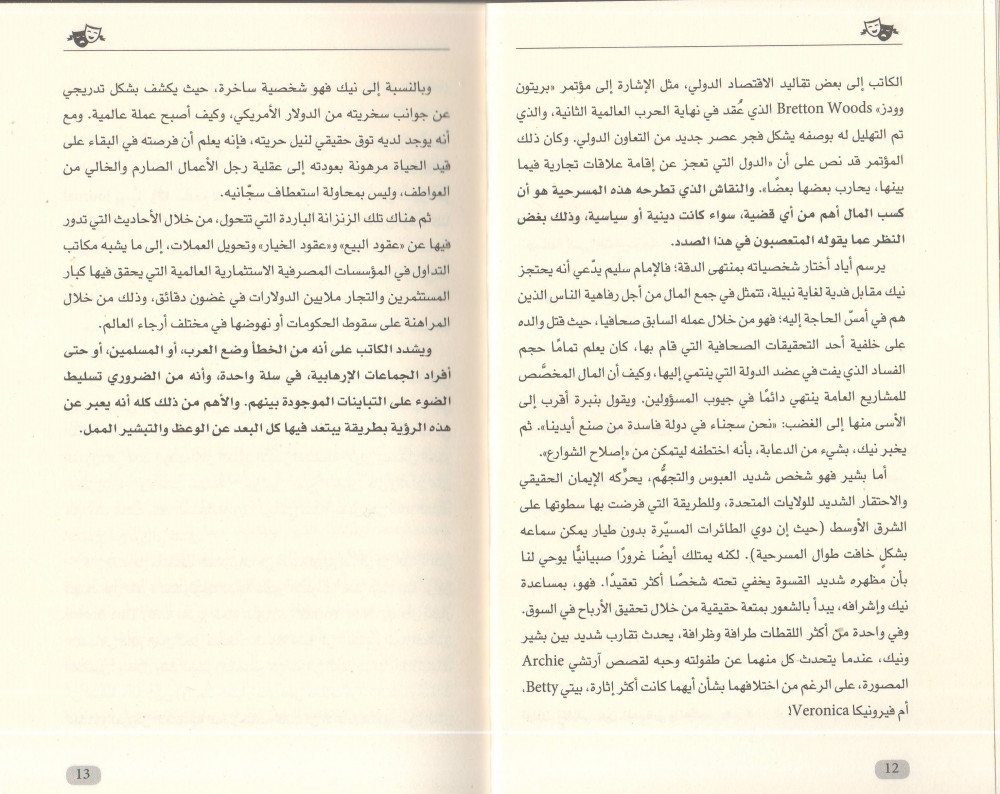 الكاتب إلى بعض تقاليد الاقتصاد الدولي، مثل الإشارة إلى مؤتمر «بريتون
وودز» Bretton Woods الذي عُقد في نهاية الحرب العالمية الثانية، والذي
تم التهليل له بوصفه يشكل فجر عصر جديد من التعاون الدولي. وكان ذلك
المؤتمر قد نص على أن «الدول التي تعجز عن إقامة علاقات تجارية فيما
بينها، يحارب بعضها بعضًا». والنقاش الذي تطرحه هذه المسرحية هو أن
كسب المال أهم من أي قضية، سواء كانت دينية أو سياسية، وذلك بغض
النظر عما يقوله المتعصبون في هذا الصدد.
يرسم أياد أختار شخصياته بمنتهى الدقة؛ فالإمام سليم يدّعي أنه يحتجز
نيك مقابل فدية لغاية نبيلة، تتمثل في جمع المال من أجل رفاهية الناس الذين
هم في أمسّ الحاجة إليه؛ فهو من خلال عمله السابق صحافيا، حيث قتل والده
على خلفية أحد التحقيقات الصحافية التي قام بها، كان يعلم تمامًا حجم
الفساد الذي يفت في عضد الدولة التي ينتمي إليها، وكيف أن المال المخصَّص
للمشاريع العامة ينتهي دائمًا في جيوب المسؤولين. ويقول بنبرة أقرب إلى
الأسى منها إلى الغضب: «نحن سجناء في دولة فاسدة من صنع أيدينا». ثم
يخبر نيك، بشيء من الدعابة، بأنه اختطفه ليتمكن من «إصلاح الشوارع».
أما بشير فهو شخص شديد العبوس والتجهُّم، يحرِّكه الإيمان الحقيقي
والاحتقار الشديد للولايات المتحدة، وللطريقة التي فرضت بها سطوتها على
الشرق الأوسط (حيث إن دوي الطائرات المسيّرة بدون طيار يمكن سماعه
بشكلٍ خافت طوال المسرحية). لكنه يمتلك أيضًا غرورًا صبيانيًّا يوحي لنا
بأن مظهره شديد القسوة يخفي تحته شخصًا أكثر تعقيدًا. فهو، بمساعدة
نيك وإشرافه، يبدأ بالشعور بمتعة حقيقية من خلال تحقيق الأرباح في السوق.
وفي واحدة من أكثر اللقطات طرافة وظرافة، يحدث تقارب شديد بين بشير
ونيك، عندما يتحدث كل منهما عن طفولته وحبه لقصص آرتشي Archie
المصورة، على الرغم من اختلافهما بشأن أيهما كانت أكثر إثارة، بيتي Betty،
أم فيرونيكا Veronica!
12
وبالنسبة إلى نيك فهو شخصية ساخرة، حيث يكشف بشكل تدريجي
عن جوانب سخريته من الدولار الأمريكي، وكيف أصبح عملة عالمية. ومع
أنه يوجد لديه توق حقيقي لنيل حريته، فإنه يعلم أن فرصته في البقاء على
قيد الحياة مرهونة بعودته إلى عقلية رجل الأعمال الصارم والخالي من
العواطف، وليس بمحاولة استعطاف سجّانيه.
ثم هناك تلك الزنزانة الباردة التي تتحول، من خلال الأحاديث التي تدور
فيها عن «عقود البيع» و«عقود الخيار» وتحويل العملات، إلى ما يشبه مكاتب
التداول في المؤسسات المصرفية الاستثمارية العالمية التي يحقق فيها كبار
المستثمرين والتجار ملايين الدولارات في غضون دقائق، وذلك من خلال
المراهنة على سقوط الحكومات أو نهوضها في مختلف أرجاء العالم.
ويشدد الكاتب على أنه من الخطأ وضع العرب، أو المسلمين، أو حتى
أفراد الجماعات الإرهابية، في سلة واحدة، وأنه من الضروري تسليط
الضوء على التباينات الموجودة بينهم. والأهم من ذلك كله أنه يعبر عن
هذه الرؤية بطريقة يبتعد فيها كل البعد عن الوعظ والتبشير الممل.
13